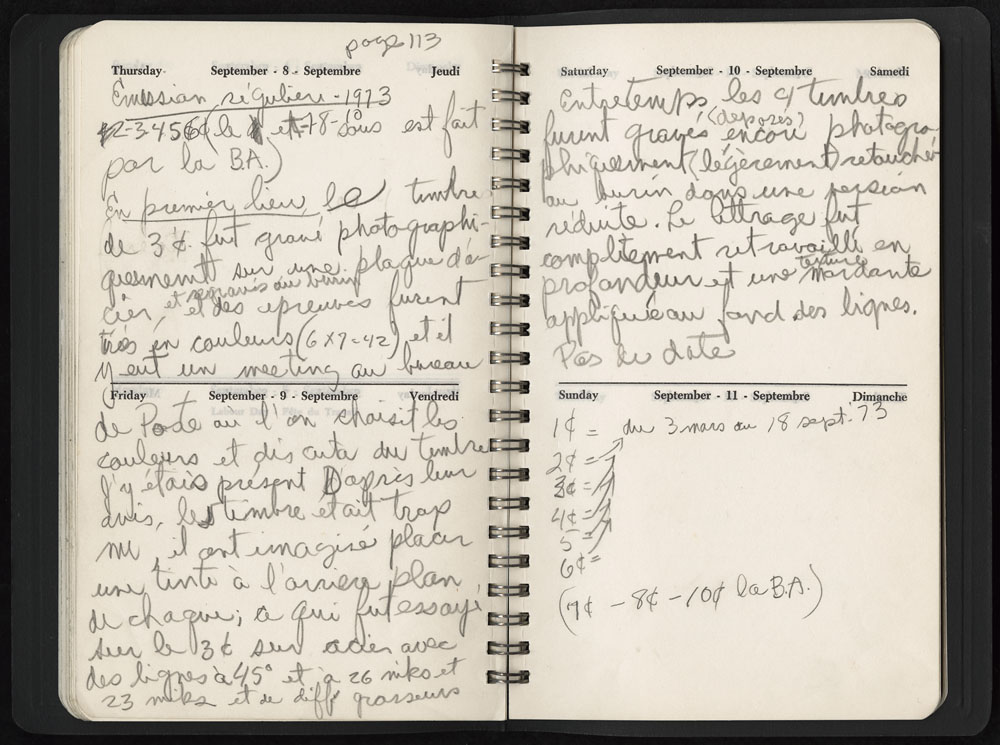 page 113
Thursday September - 8 - Septembre Jeudi
Émission régulière - 1973
2-3-4-5-6¢ (le et 7-8-10 sous est fait
par la B.A.)
En premier lieu, le timbre
de 3¢ fut gravé photographi-
quement sur une plaque d'a-
cier, et regravés au burin et des épreuves furent
tirés en couleurs (6 x 7 = 42) et il
y eut un meeting au bureau
Friday September - 9 - Septembre Vendredi
de Poste ou l'on choisit les
couleurs et discuta du timbre
J'y étais présent D'après leur
avis, le timbre était trop
nu, il ont imaginé placer
une tinte à l'arrière plan
de chaque; ce qui fut essayé
sur le 3¢ sur acier avec
des lignes à 45° et à 26 miks et
23 miks et de diff grosseurs
Saturday September - 10 - Septembre Samedi
Entretemps, les 4 timbres
furent gravés (déposés) encore photogra-
phiquement (légèrement) retouché
au burin dans une version
réduite. Le lettrage fut
complètement retravaillé en
profondeur et une texture mordante
appliquée au fond des lignes.
Pas de date
Sunday September - 11 - Septembre Dimanche
1¢ = du 3 mars au 18 sept. 73
2¢ =
3¢ =
4¢ =
5 =
6¢ =
(7¢ - 8¢ - 10¢ la B.A.)